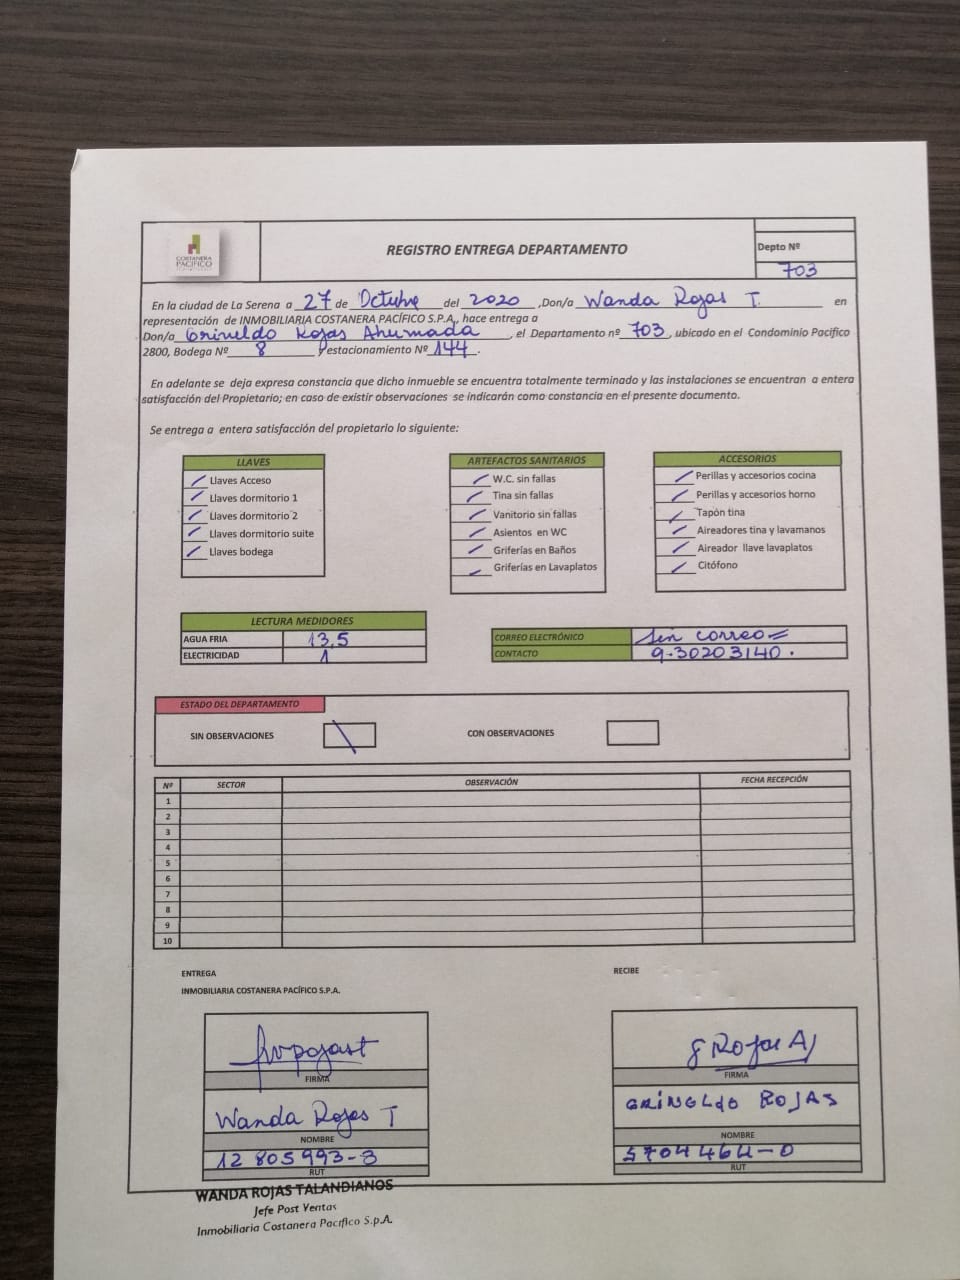 COSTANERA
PACÍFICO
REGISTRO ENTREGA DEPARTAMENTO
Depto Nº
703
En la ciudad de La Serena a 27 de Octubre del 2020 ,Don/a Wanda Rojas T. en
representación de INMOBILIARIA COSTANERA PACÍFICO S.P.A., hace entrega a
Don/a Grineldo Rojas Ahumada , el Departamento nº 703 , ubicado en el Condominio Pacifico
2800, Bodega Nº 8 y estacionamiento Nº 144 .
En adelante se deja expresa constancia que dicho inmueble se encuentra totalmente terminado y las instalaciones se encuentran a entera
satisfacción del Propietario; en caso de existir observaciones se indicarán como constancia en el presente documento.
Se entrega a entera satisfacción del propietario lo siguiente:
LLAVES
Llaves Acceso
Llaves dormitorio 1
Llaves dormitorio 2
Llaves dormitorio suite
Llaves bodega
ARTEFACTOS SANITARIOS
W.C. sin fallas
Tina sin fallas
Vanitorio sin fallas
Asientos en WC
Griferías en Baños
Griferías en Lavaplatos
ACCESORIOS
Perillas y accesorios cocina
Perillas y accesorios horno
Tapón tina
Aireadores tina y lavamanos
Aireador llave lavaplatos
Citófono
LECTURA MEDIDORES
AGUA FRIA 13,5
ELECTRICIDAD 1
CORREO ELECTRÓNICO Sin correo=
CONTACTO 9.30203140.
ESTADO DEL DEPARTAMENTO
SIN OBSERVACIONES
CON OBSERVACIONES
Nº SECTOR OBSERVACIÓN FECHA RECEPCIÓN
1
2
3
4
5
6
7
8
9
10
ENTREGA
INMOBILIARIA COSTANERA PACÍFICO S.P.A.
FIRMA
Wanda Rojas T
NOMBRE
12 805993-3
RUT
WANDA ROJAS TALANDIANOS
Jefe Post Ventas
Inmobiliaria Costanera Pacífico S.p.A.
RECIBE
G Rojas A
FIRMA
GRINELdo ROJAS
NOMBRE
5704464-0
RUT